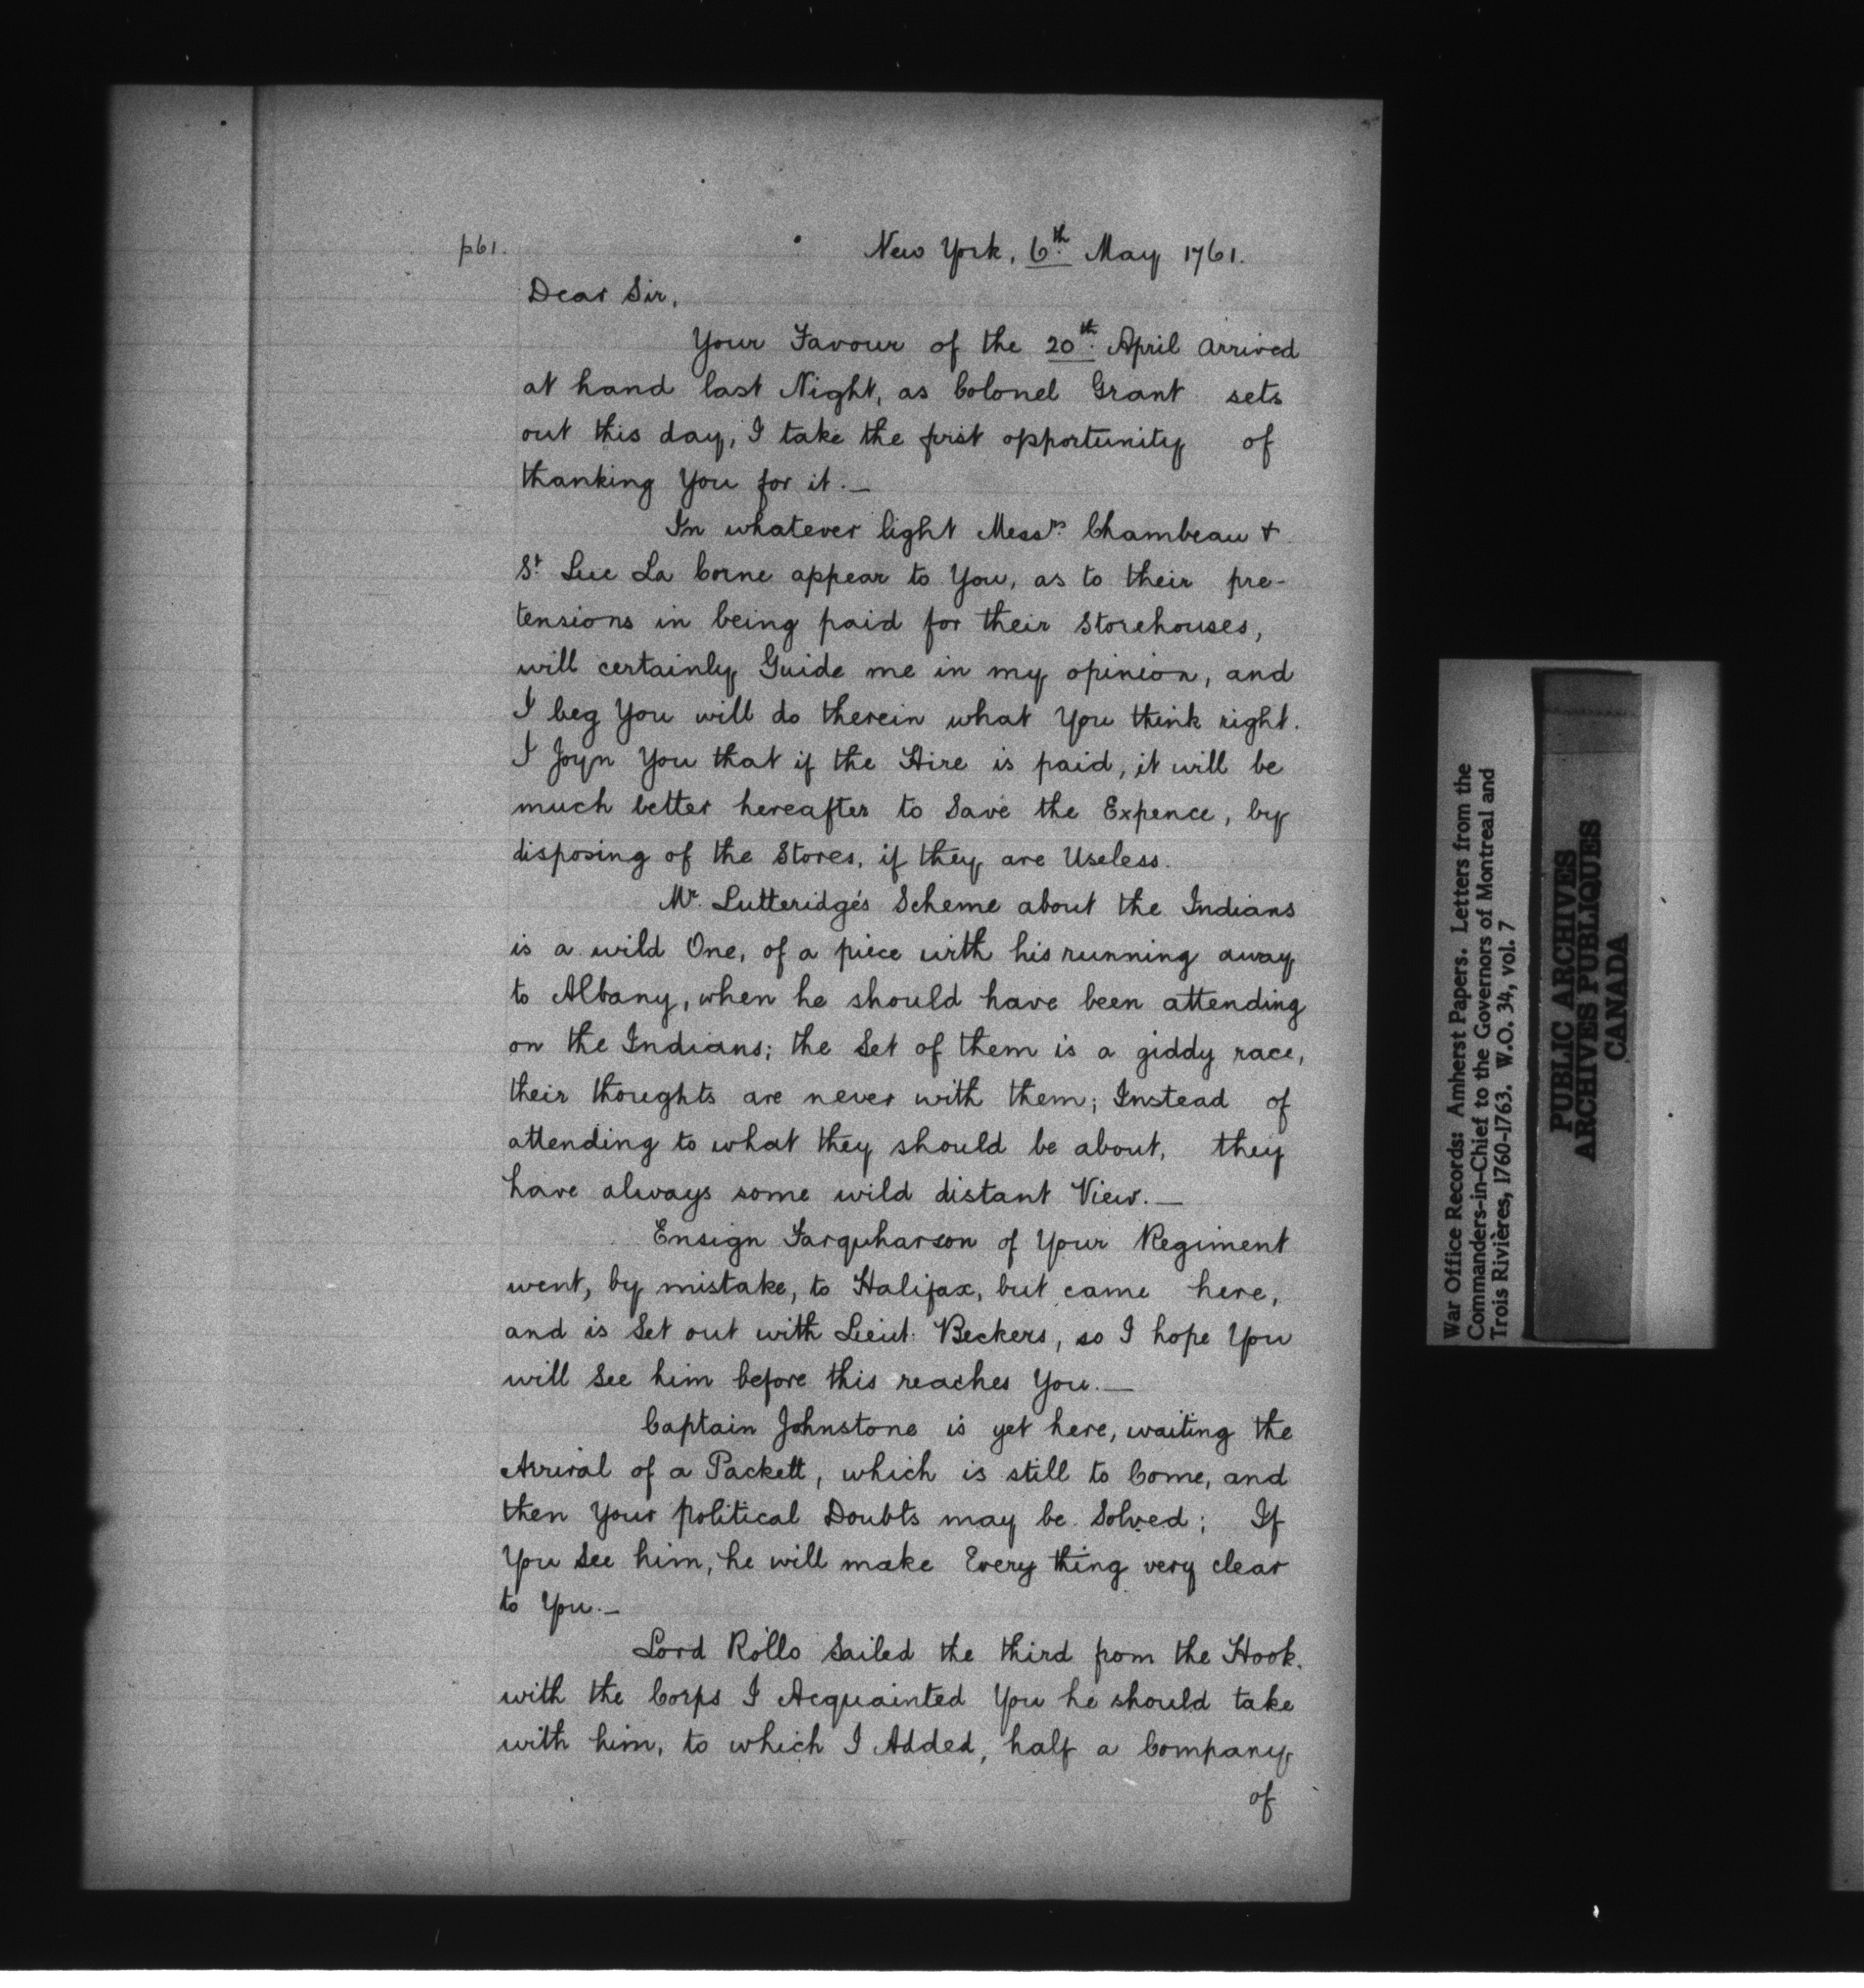 p61.
New York, 6th. May 1761.
Dear Sir,
Your Favour of the 20th. April arrived
at hand last Night, as Colonel Grant sets
out this day, I take the first opportunity of
thanking You for it._
In whatever light Messrs. Chambeau &
St. Luc La Corne appear to You, as to their pre-
tensions in being paid for their Storehouses,
will certainly Guide me in my opinion, and
I beg You will do therein what You think right.
I Joyn You that if the Hire is paid, it will be
much better hereafter to Save the Expence, by
disposing of the Stores, if they are Useless.
Mr. Lutteridge's Scheme about the Indians
is a wild One, of a piece with his running away
to Albany, when he should have been attending
on the Indians; the Set of them is a giddy race,
their thoughts are never with them; Instead of
attending to what they should be about, they
have always some wild distant View._
Ensign Farquharson of Your Regiment
went, by mistake, to Halifax, but came here,
and is Set out with Lieut. Beckers, so I hope You
will See him before this reaches You._
Captain Johnstone is yet here, waiting the
Arrival of a Packett, which is still to Come, and
then Your political Doubts may be Solved; If
You See him, he will make Every thing very clear
to You._
Lord Rollo Sailed the third from the Hook,
with the Corps I Acquainted You he should take
with him, to which I Added, half a Company
of
War Office Records: Amherst Papers. Letters from the
Commanders-in-Chief to the Governors of Montreal and
Trois Rivières, 1760-1763. W.O. 34, vol. 7
PUBLIC ARCHIVES
ARCHIVES PUBLIQUES
CANADA